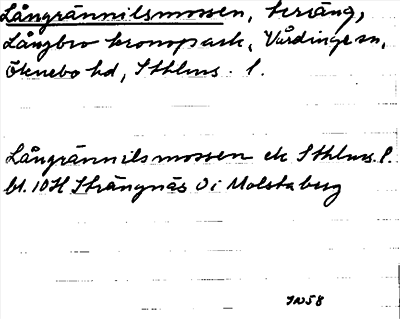 Långrännilsmossen, terräng,
Långbro kronopark, Vårdinge sn,
Öknebo hd, Sthlms. l.
Långrännilsmossen ek Sthlms. l.
bl. 10H Strängnäs O i Molstaberg
IN58